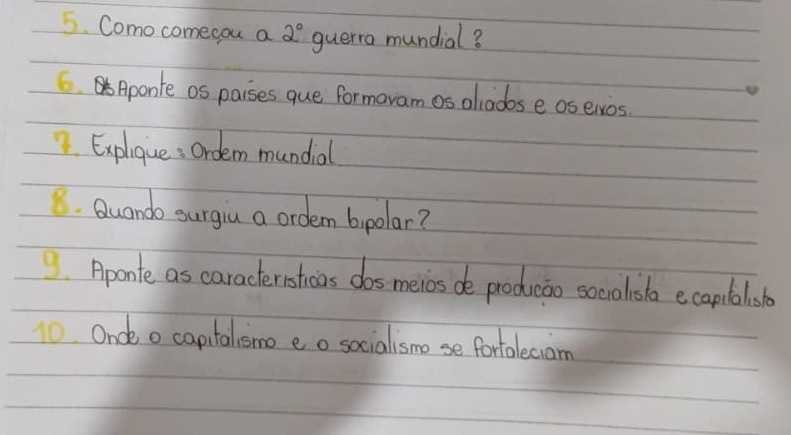 5. Como começou a 2° guerra mundial?
6. Aponte os países que formavam os aliados e os eixos.
7. Explique: Ordem mundial
8. Quando surgiu a ordem bipolar?
9. Aponte as caracteristicas dos meios de produção socialista e capitalista
10. Onde o capitalismo e o socialismo se fortaleciam